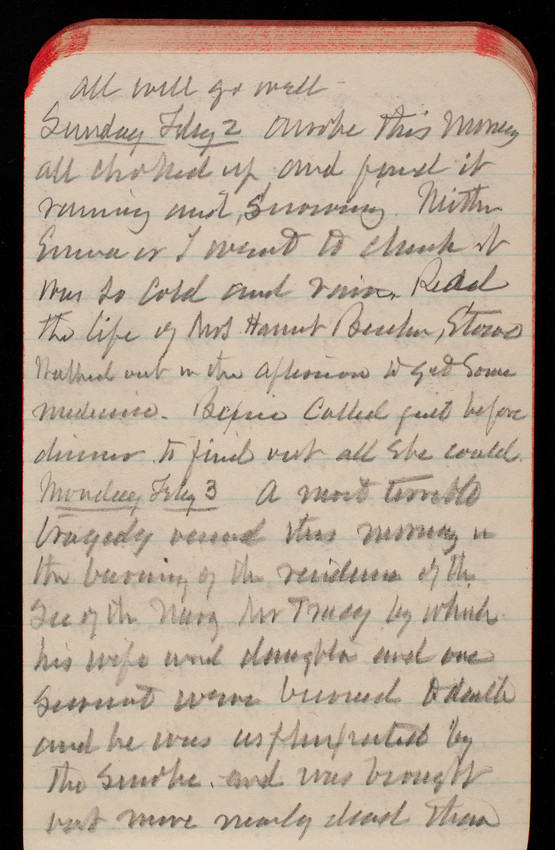 all will go well -
Sunday Feby 2 awoke this morning
all choked up and found it
raining and, snowing. Neither
Emma or I went to church it
was so cold and rain. Read
the life of Mrs Harriet Beecher, Stowe
Walked out in the afternoon to get some
medicine. called just before
dinner to find out all she could.
Monday Feby 3 A most terrible
tragedy occured this morning in
the burning of the residence of the
Sec of the Navy Mr Tracy by which
his wife and daughter and one
servant were burned to death
and he was by
the smoke. and was brought
out more nearly dead than